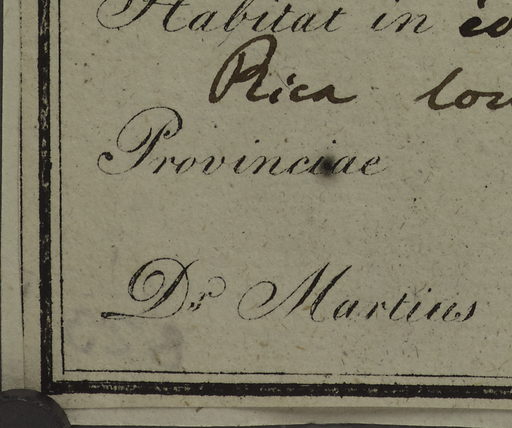 Habitat in
Rica
Provinciae
Dr Martius